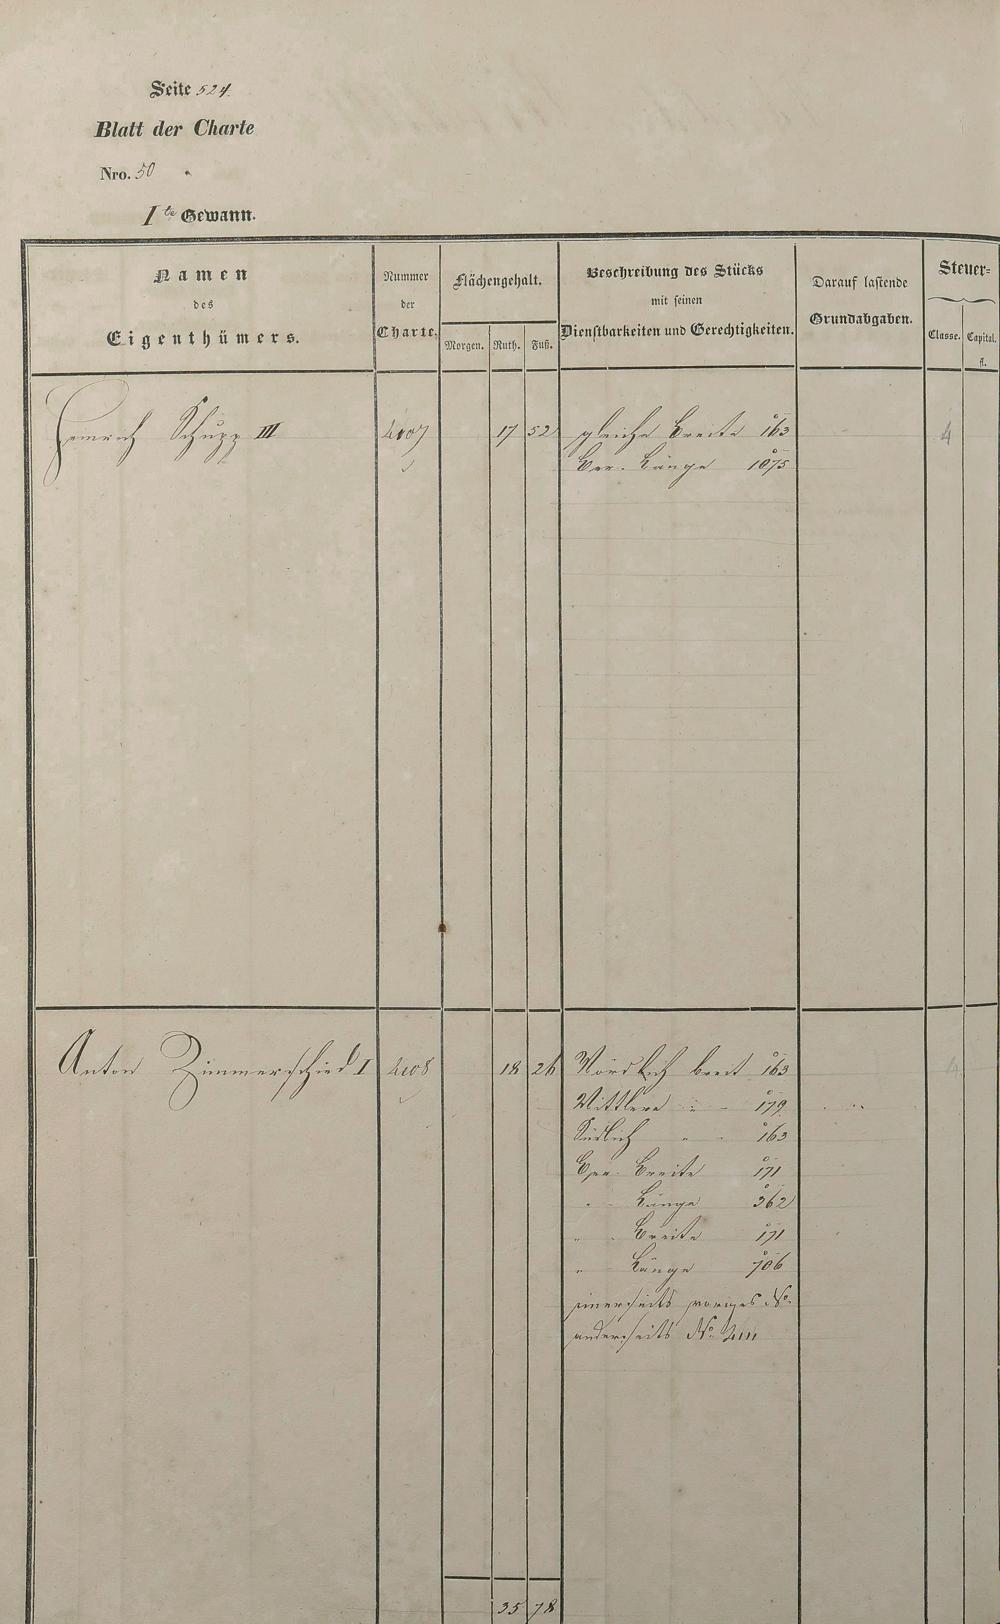 Seite 524.
Blatt der Charte
Nro. 50
I te Gewann.
Namen
des
Eigenthümers.
Nummer
der
Charte.
Flächengehalt.
Morgen. Ruth. Fuß.
Beschreibung des Stücks
mit seinen
Dienstbarkeiten und Gerechtigkeiten.
Darauf lastende
Grundabgaben.
Steuer-
Classe. Capital.
fl.
Heinrich Schupp III 4107 17 52 gleiche Breite 163 4
Ber. Länge 1075
Anton Zimmerschied I 4108 18 26 Nördlich breit 163 4
Mittlere " 179
Südlich " 163
Ber. Breite 171
" Länge 362
" Breite 171
" Länge 706
einerseits voriges No.
anderseits No. 4111
35 78